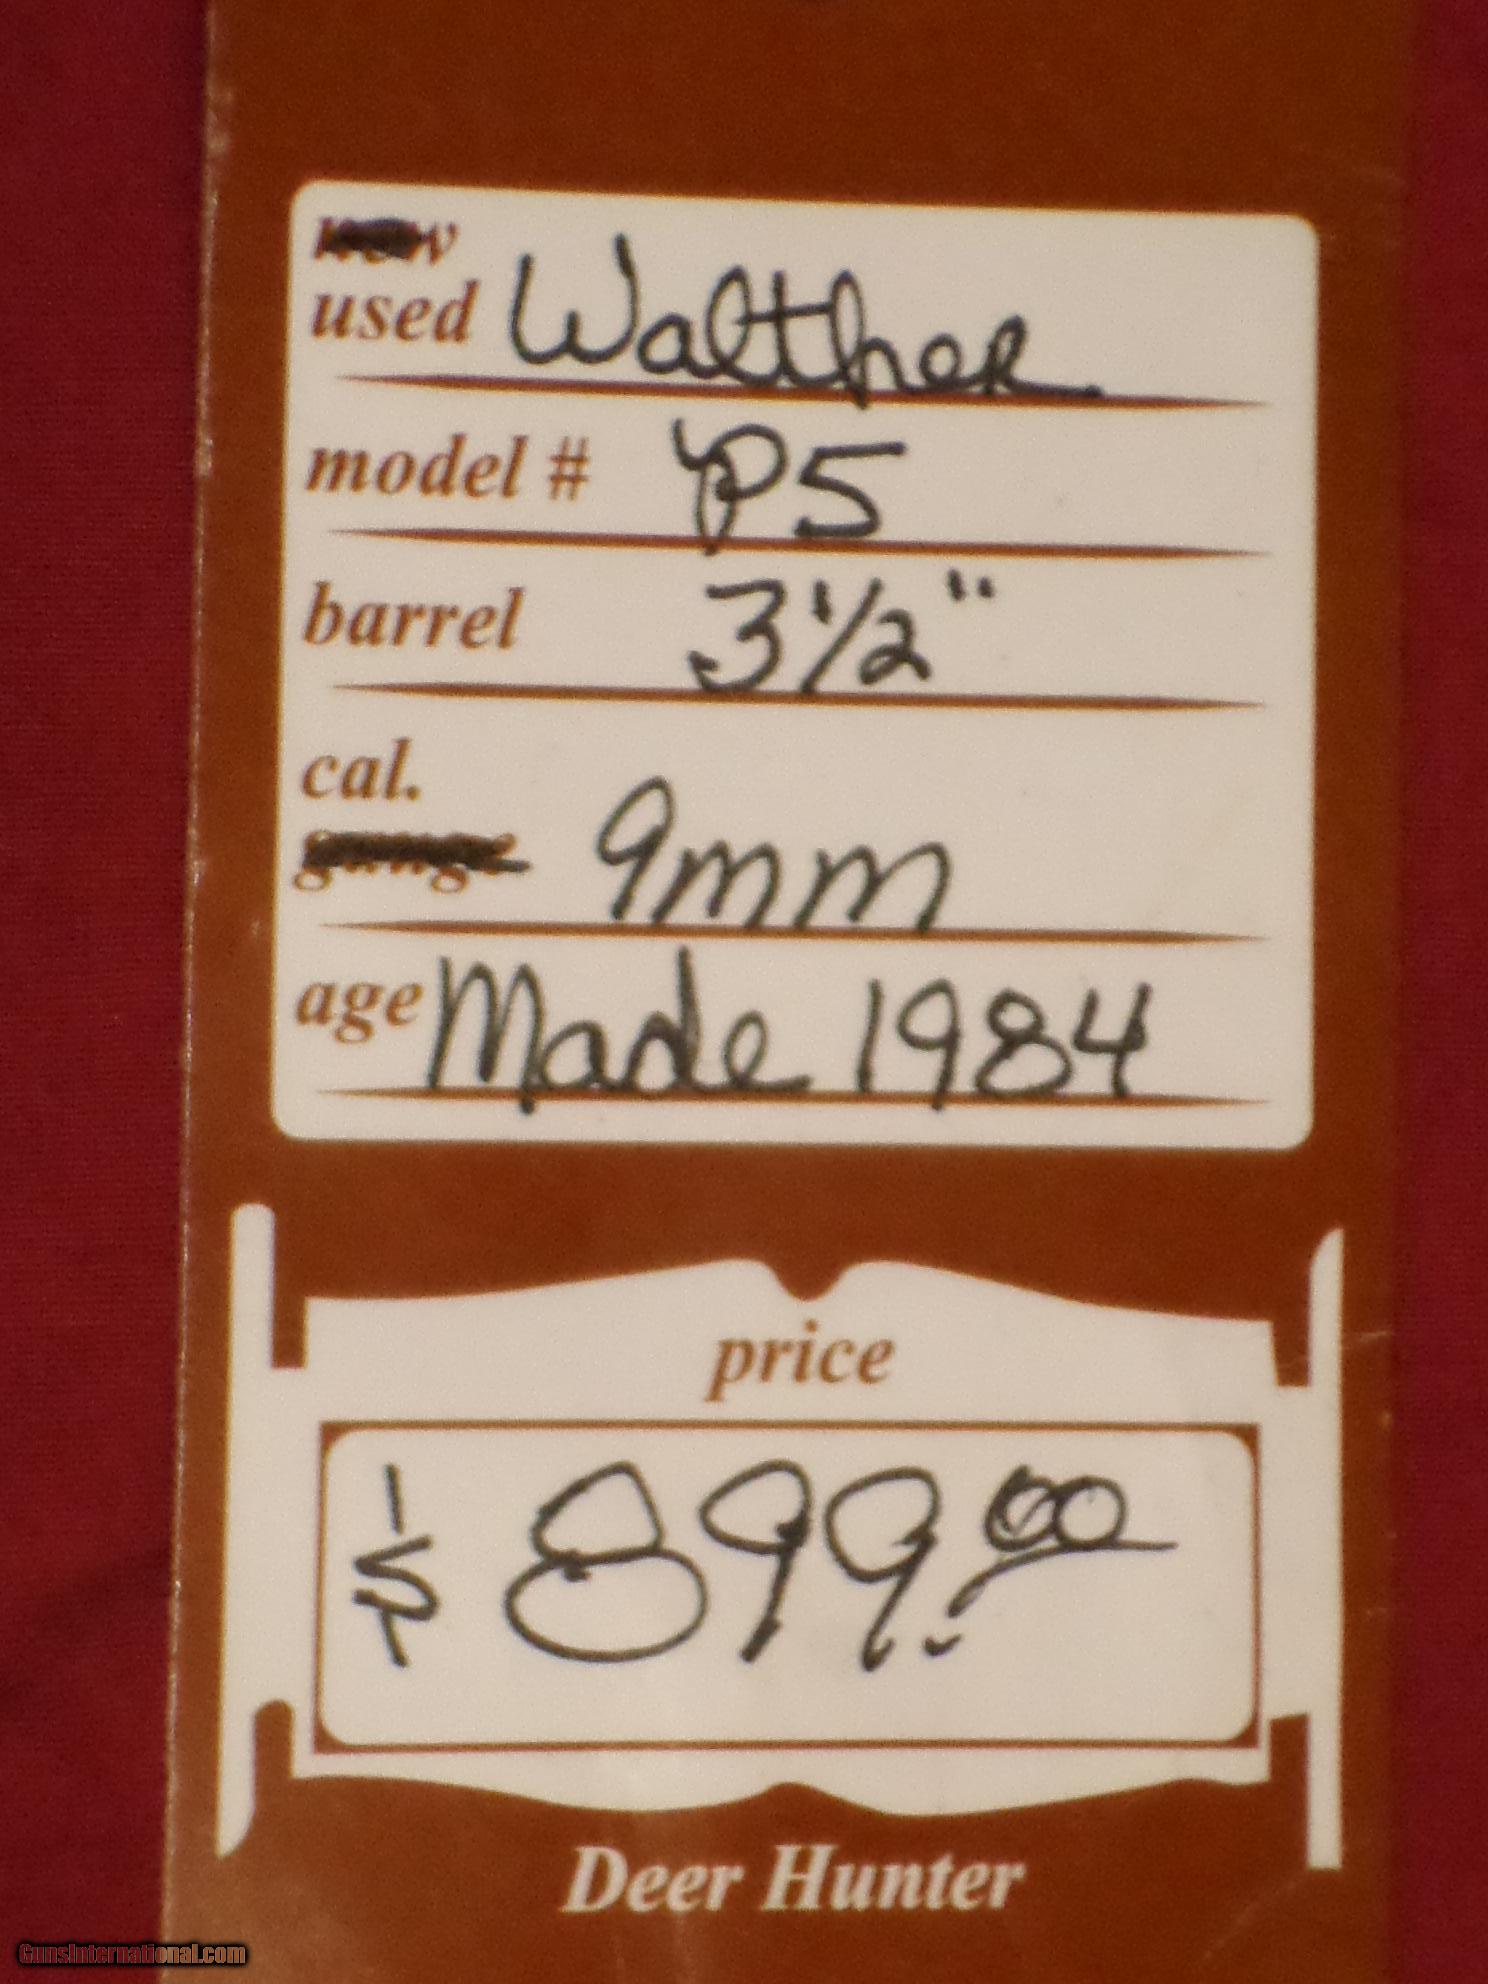 new
used Walther
model # P5
barrel 3 1/2"
cal.
gauge 9mm
age Made 1984
price
$ 899.00
Deer Hunter
GunsInternational.com